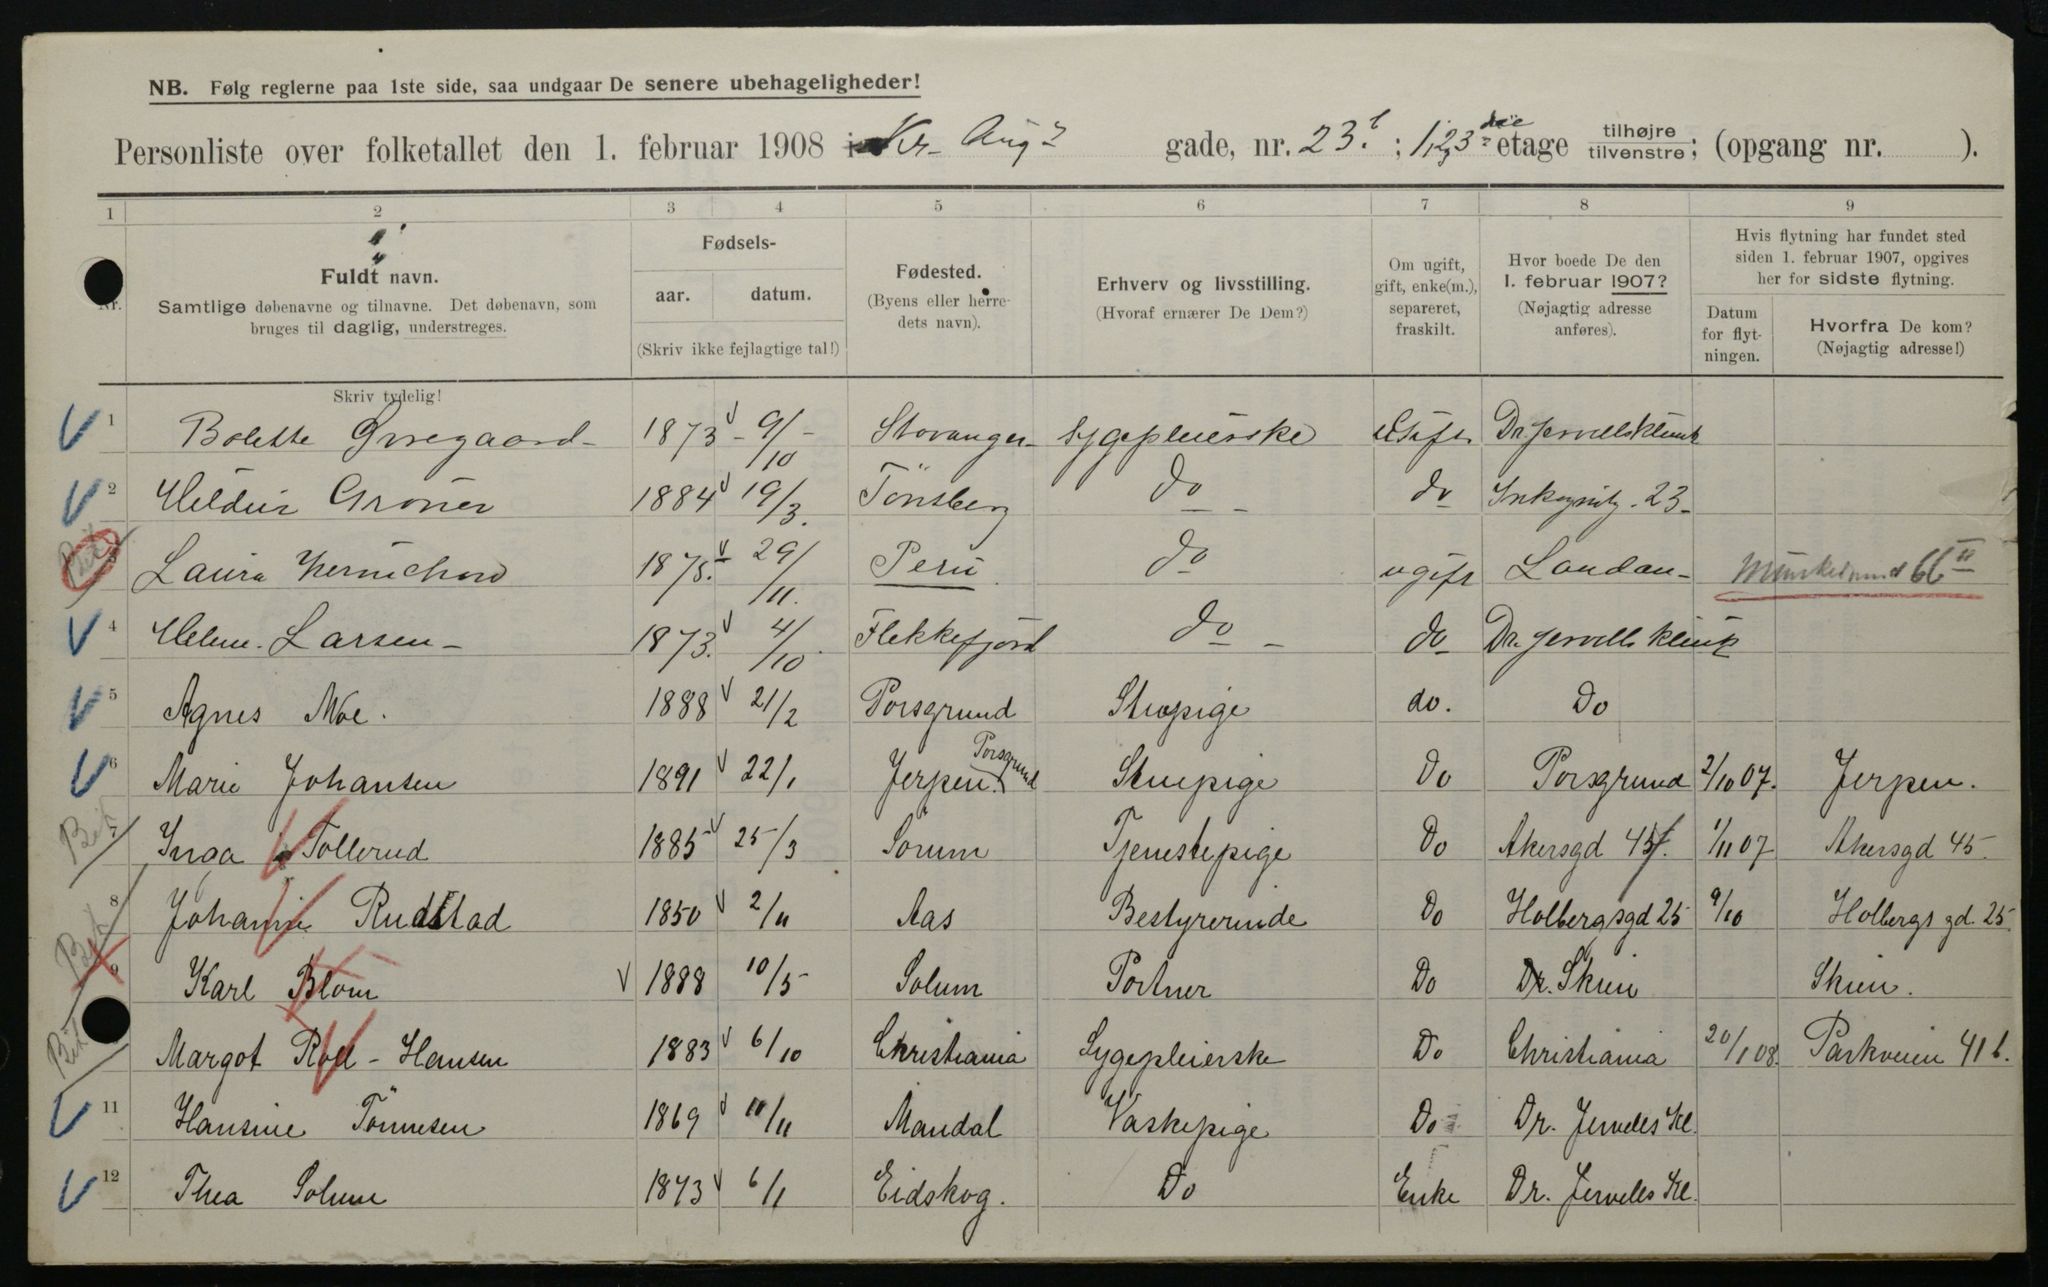 NB. Følg reglerne paa 1ste side, saa undgaar De senere ubehageligheder!
Personliste over folketallet den 1. februar 1908 i Kr. Aug. gade, nr. 23 b; 1,2,3die etage tilhøjre tilvenstre; (opgang nr. ).
1 2 3 4 5 6 7 8 9
Nr.
Fuldt navn.
Samtlige døbenavne og tilnavne. Det døbenavn, som
bruges til daglig, understreges.
Skriv tydelig!
Fødsels-
aar. datum.
(Skriv ikke fejlagtige tal!)
Fødested.
(Byens eller herre-
dets navn).
Erhverv og livsstilling.
(Hvoraf ernærer De Dem?)
Om ugift,
gift, enke(m.),
separeret,
fraskilt.
Hvor boede De den
1. februar 1907?
(Nøjagtig adresse
anføres).
Hvis flytning har fundet sted
siden 1. februar 1907, opgives
her for sidste flytning.
Datum
for flyt-
ningen.
Hvorfra De kom?
(Nøjagtig adresse!)
1 Bolette 1873 - 9/10 - Stavanger Sygepleierske Ugift Dr. Jervells Klinik
2 Grøner 1884 19/3. Tönsberg do do 23
3 Laura 1875. 29/11. Peru do ugift London 66 II
4 Helene Larsen 1873. 4/10 Flekkefjord do do Dr. Jervells Klinik
5 Agnes Moe. 1888 21/2 Porsgrund Stuepige do. Do
6 Marie Johansen 1891 22/1 Jerpen. Porsgrund Stuepige Do Porsgrund 2/10 07. Jerpen.
7 Inga Tollerud 1885 25/3 Sörum Tjenestepige Do Akersgd 45. 1/11 07 Akersgd 45.
8 Johanne Rudstad 1850 2/11 Aas Bestyrerinde Do Holbergsgd 25 9/10 Holbergs gd. 25.
9 Karl Blom 1888 10/5 Solum Portner Do Skien Skien.
Margot Roll-Hansen 1883 6/10 Christiania Sygepleierske Do Christiania 20/1 08. Parkveien 41 b.
11 Hansine Tönnesen 1869 11/11 Mandal Vaskepige Do Dr. Jervells Kl.
12 Thea Solum 1873 6/1 Eidskog. Do Enke Dr. Jervells Kl.